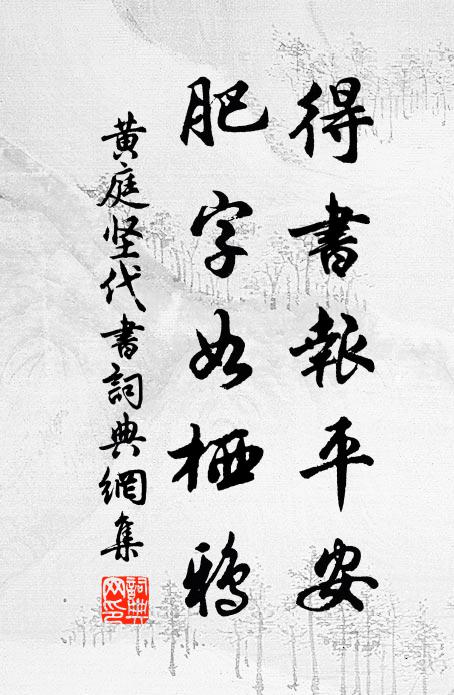 得書報平安
肥字如栖鴉
黄庭坚代書詞典網集
詞典網印